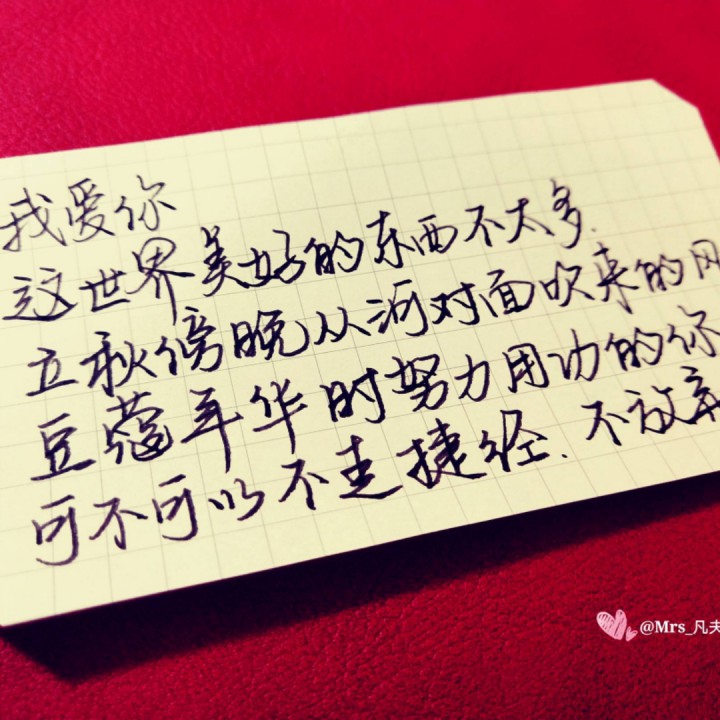 我爱你
这世界美好的东西不太多.
立秋傍晚从河对面吹来的风
豆蔻年华时努力用功的你
可不可以不走捷径.不放弃
@Mrs_凡夫